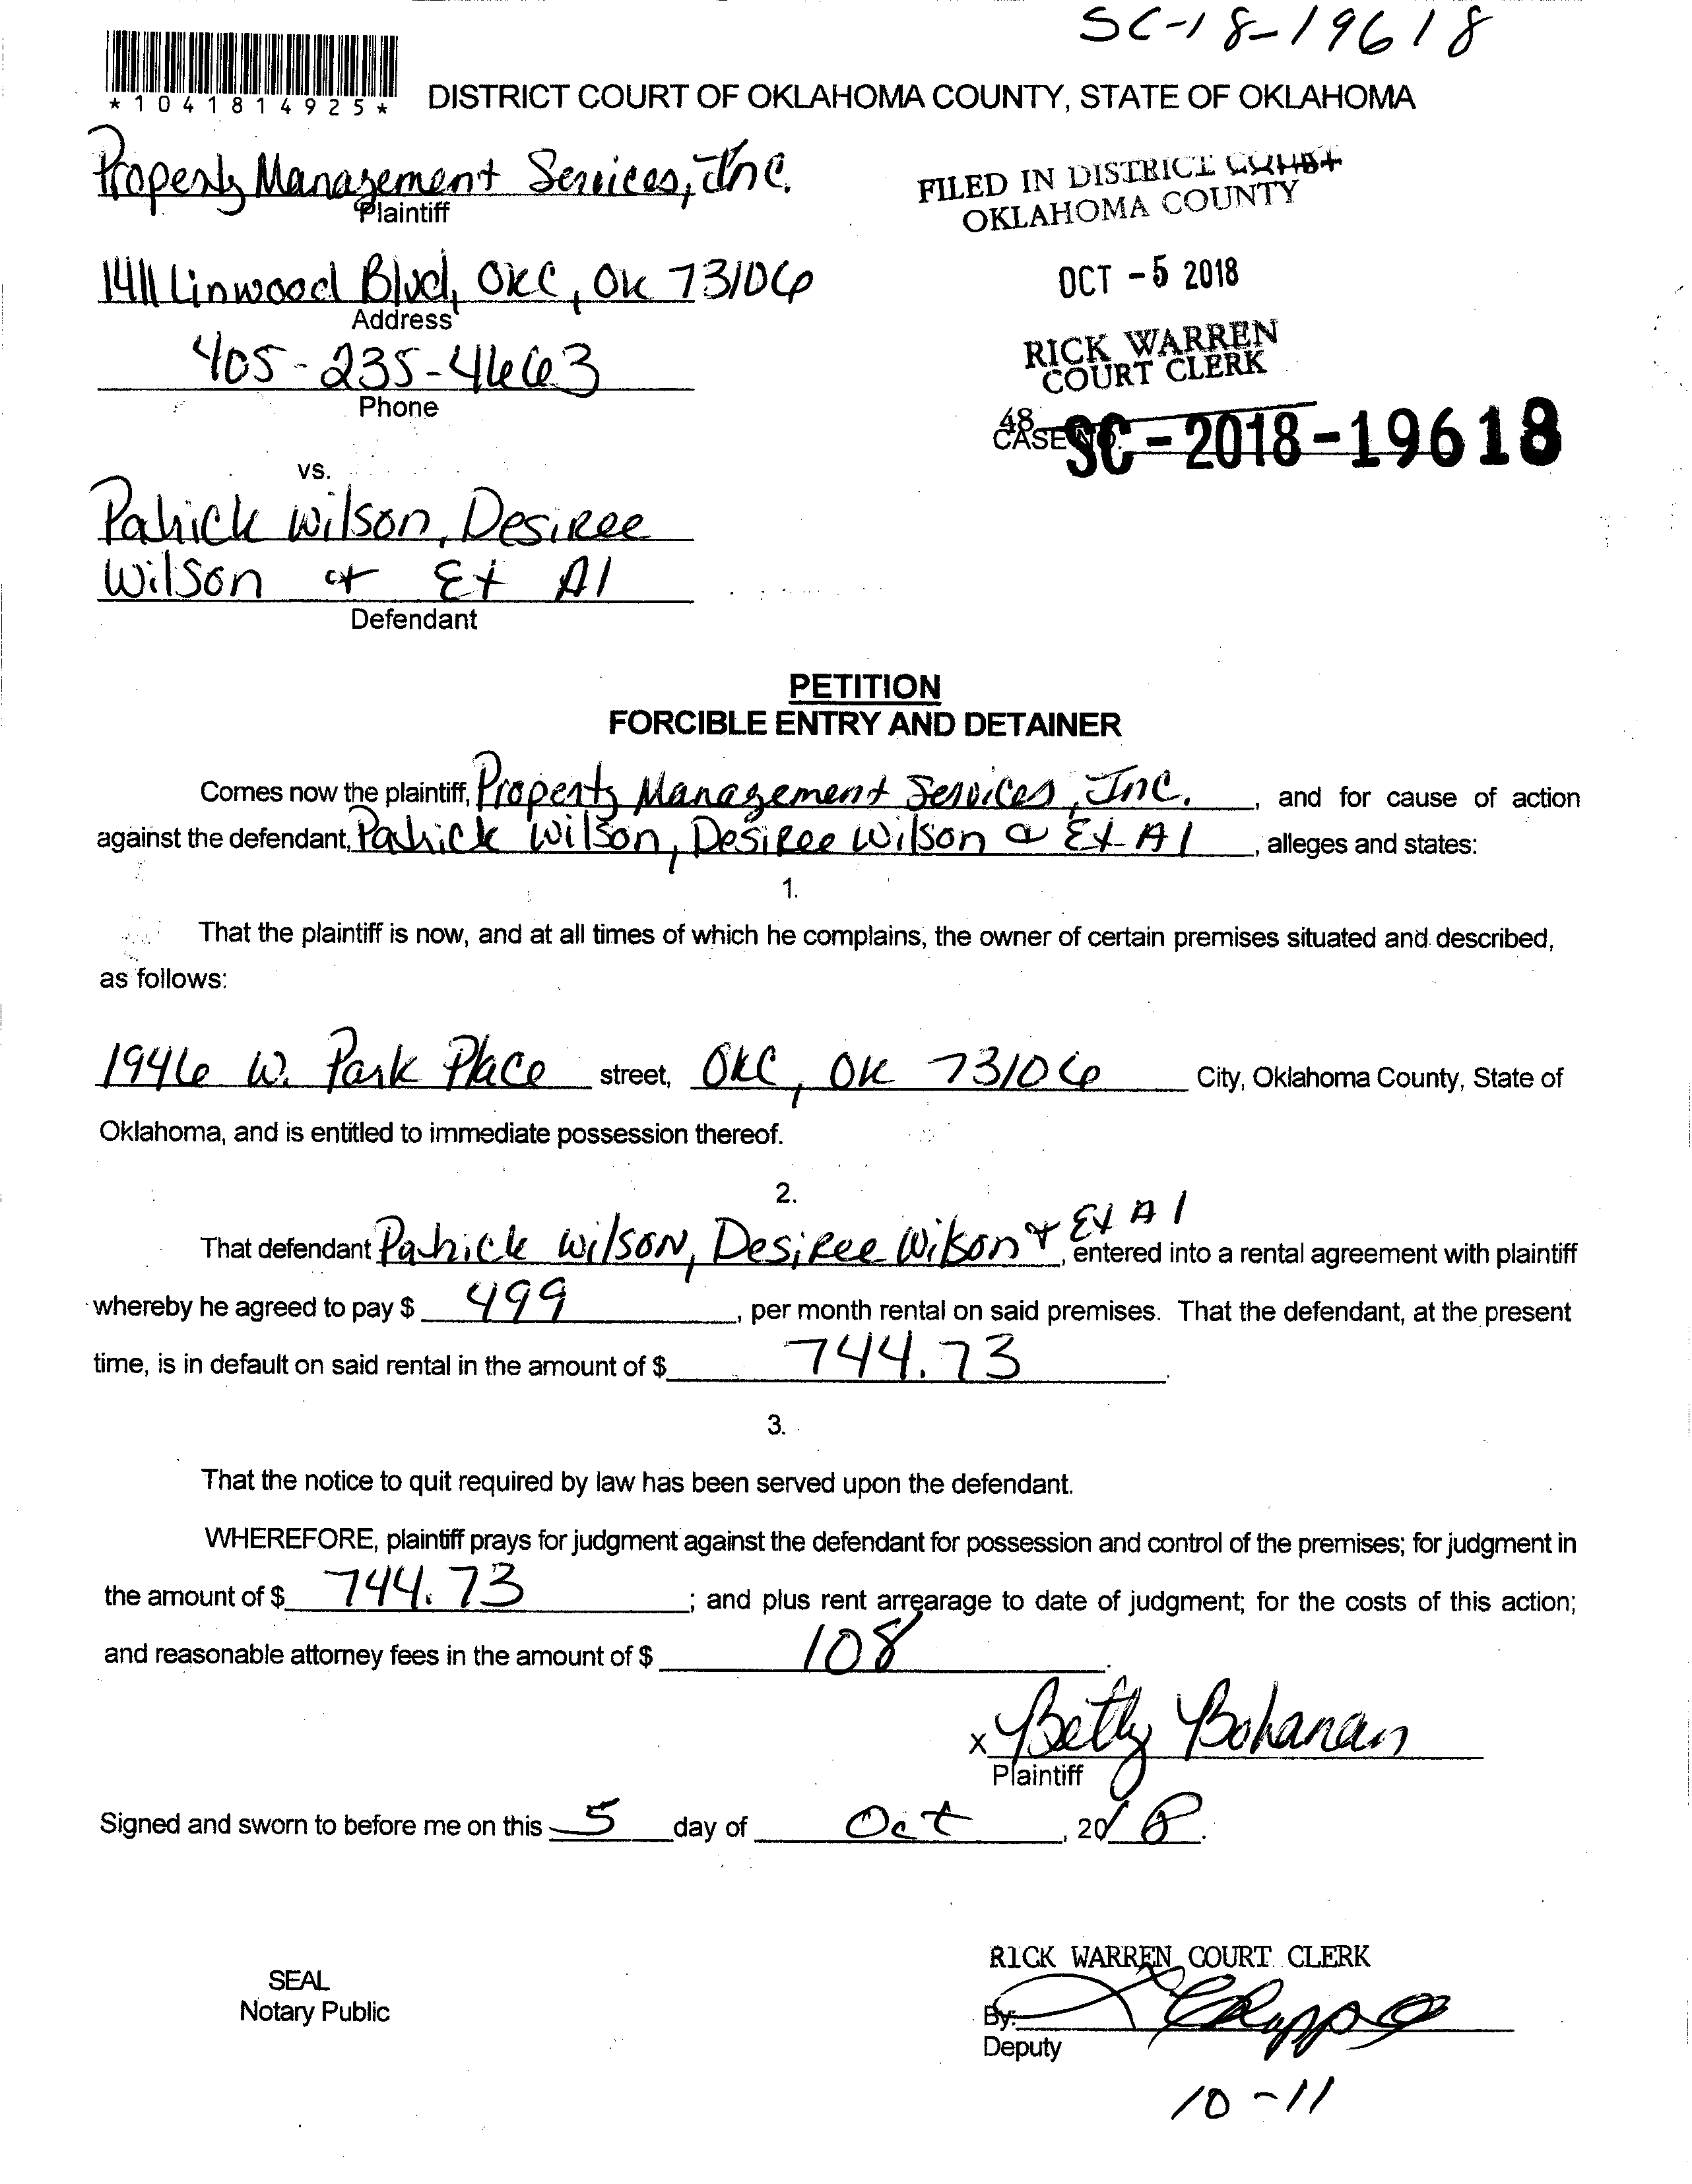 SC-18-19618
*1041814925*
DISTRICT COURT OF OKLAHOMA COUNTY, STATE OF OKLAHOMA
Property Management Services, Inc.
Plaintiff
FILED IN DISTRICT COURT
OKLAHOMA COUNTY
1411 Linwood Blvd, OKC, OK 73106
Address
OCT -5 2018
405-235-4663
Phone
RICK WARREN
COURT CLERK
48
CASE NO. SC-2018-19618
vs.
Patrick Wilson, Desiree
Wilson & Et Al
Defendant
PETITION
FORCIBLE ENTRY AND DETAINER
Comes now the plaintiff, Property Management Services, Inc. , and for cause of action
against the defendant, Patrick Wilson, Desiree Wilson & Et Al , alleges and states:
1.
That the plaintiff is now, and at all times of which he complains, the owner of certain premises situated and described,
as follows:
1946 W. Park Place street, OKC, OK 73106 City, Oklahoma County, State of
Oklahoma, and is entitled to immediate possession thereof.
2.
That defendant Patrick Wilson, Desiree Wilson & Et Al , entered into a rental agreement with plaintiff
whereby he agreed to pay $ 499 , per month rental on said premises. That the defendant, at the present
time, is in default on said rental in the amount of $ 744.73 .
3.
That the notice to quit required by law has been served upon the defendant.
WHEREFORE, plaintiff prays for judgment against the defendant for possession and control of the premises; for judgment in
the amount of $ 744.73 ; and plus rent arrearage to date of judgment; for the costs of this action;
and reasonable attorney fees in the amount of $ 108 .
x Betty Bohanan
Plaintiff
Signed and sworn to before me on this 5 day of Oct , 2018.
RICK WARREN COURT CLERK
SEAL
Notary Public
By:
Deputy
10-11